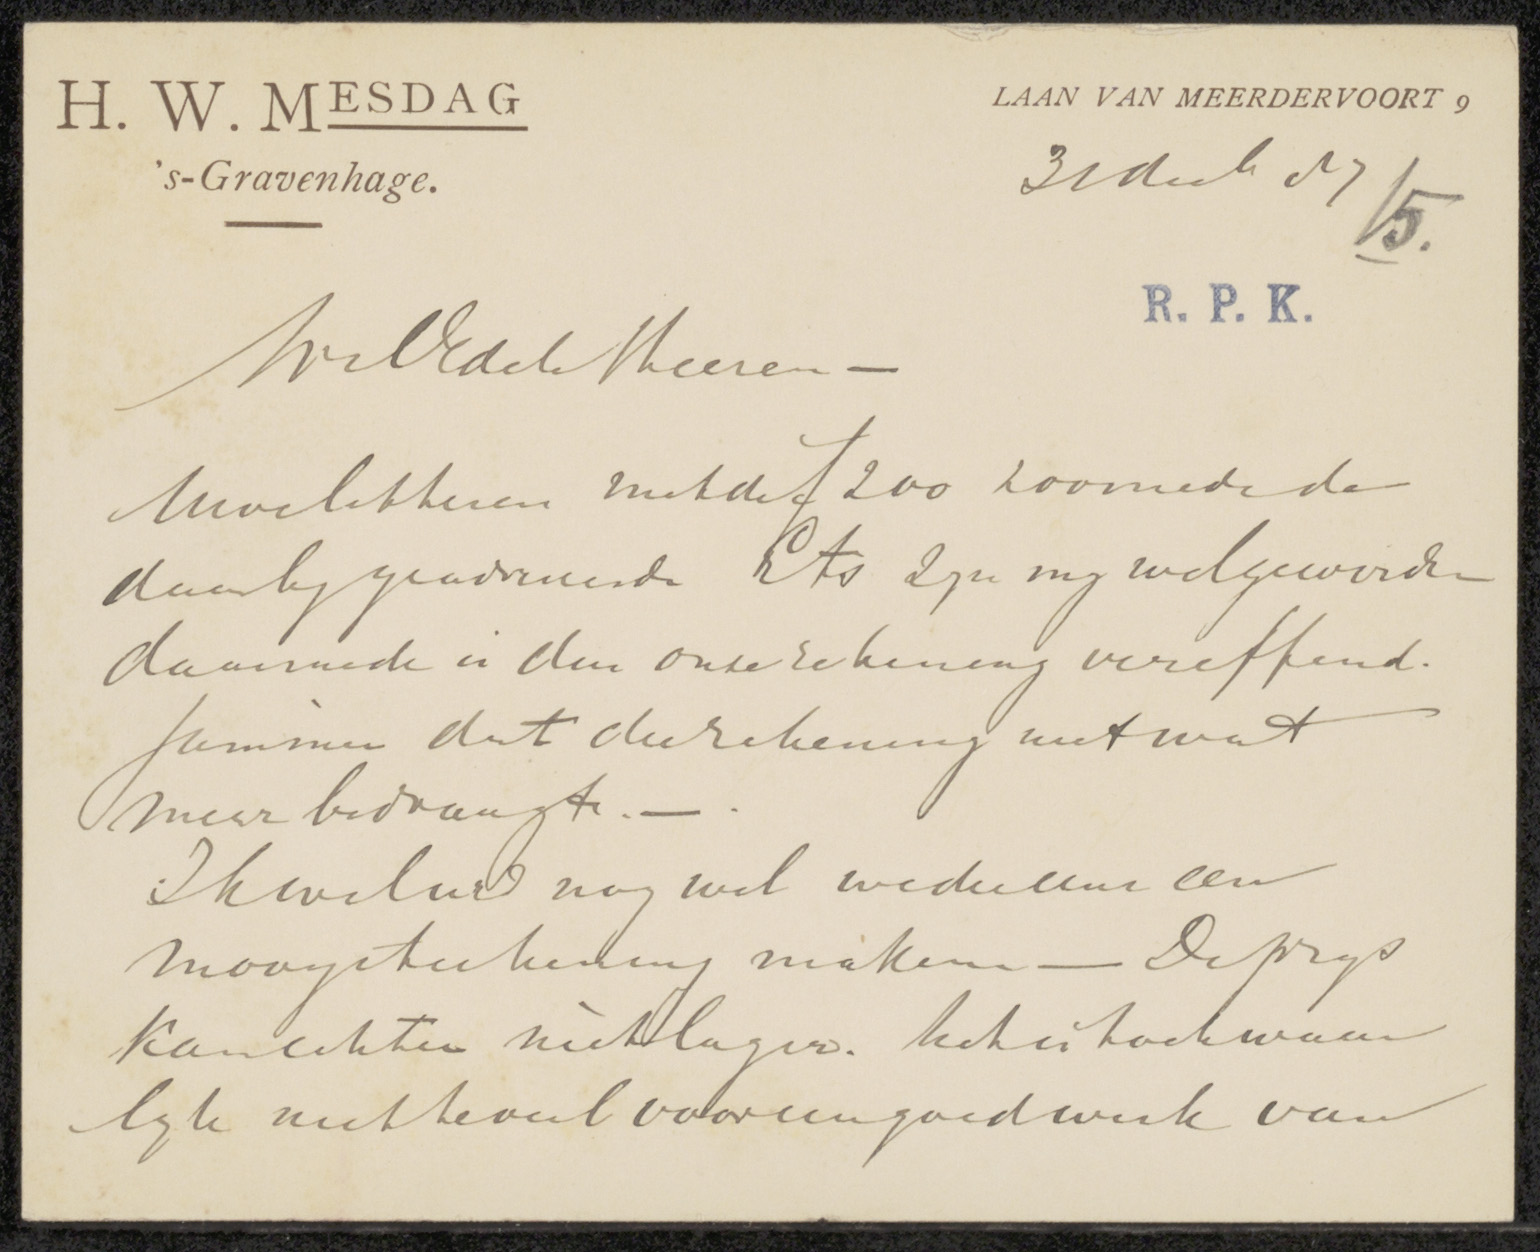 H. W. MESDAG
's-Gravenhage.
LAAN VAN MEERDERVOORT 9
31 Dec 87
15.
R. P. K.
WelEdele Heeren —
Uwe letteren met de f 200 zoomede de
daarby gevoegde Ets zyn my wel geworden
daarmede is dus onze rekening vereffend.
Jammer dat die rekening niet wat
meer bedraagt. —
Ik wil u nog wel weder eens een
mooye teekening maken — De prys
kan echter niet lager. het is toch waar
lyk niet te veel voor een goed werk van